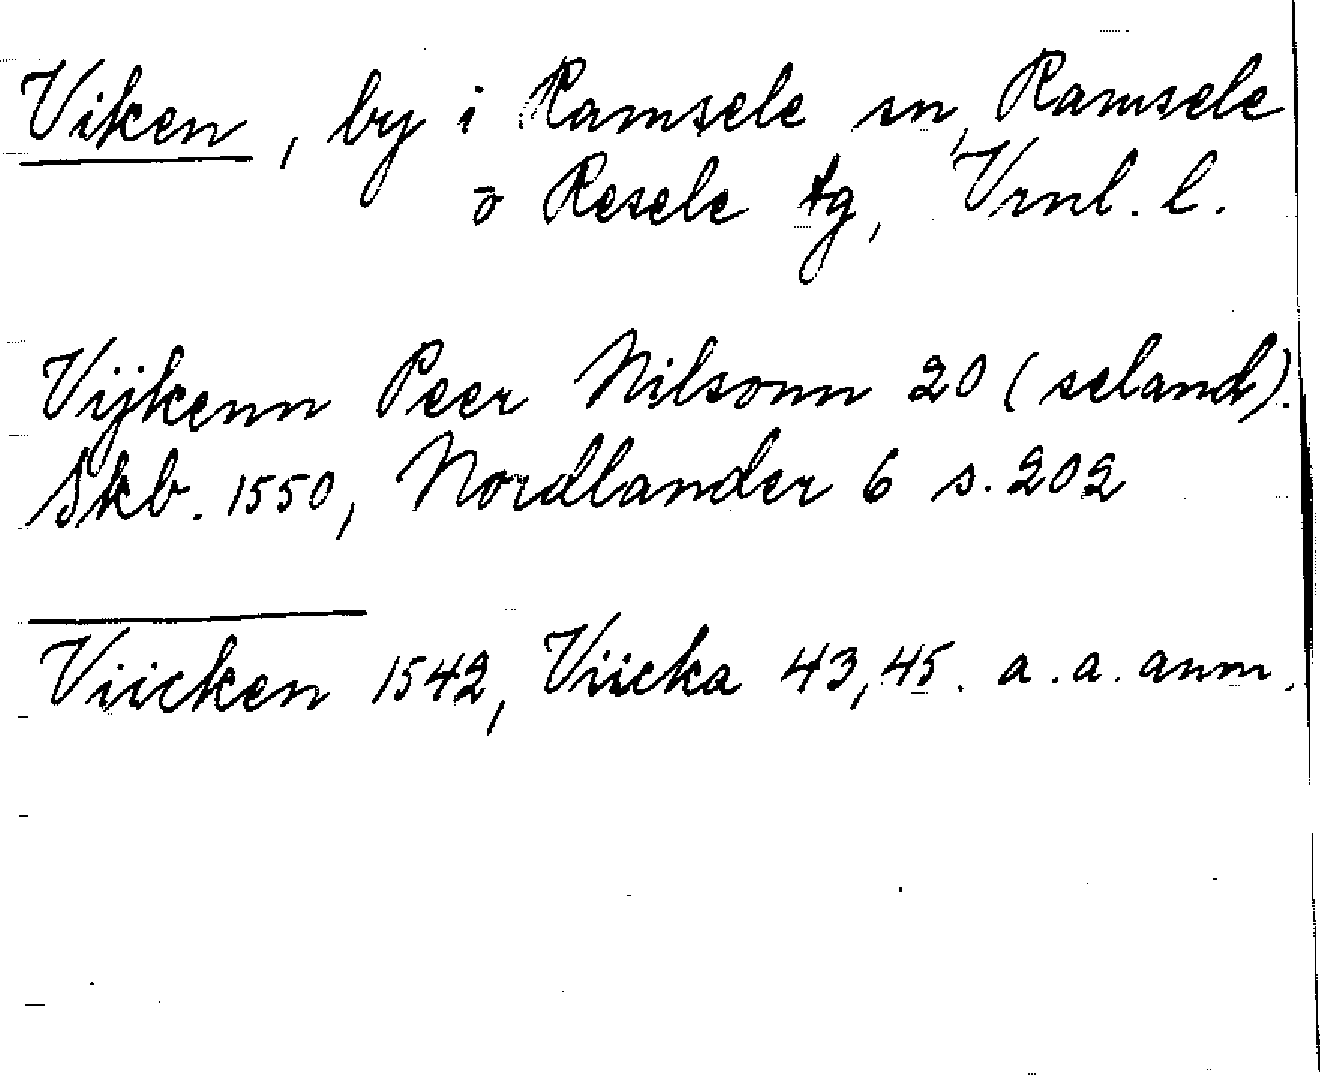 Viken, by i Ramsele sn, Ramsele
o Resele tg, Vrnl. l.
Vijkenn Peer Nilsonn 20 (seland).
Skb. 1550, Nordlander 6 s. 202
Viicken 1542, Viicka 43, 45. a. a. anm.